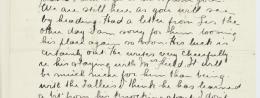 We are still here, as you will see
by heading. Had a letter from Les the
other day I am sorry for him losing
his place again so soon. His luck is
certainly out. He writes very cheerfully
& is staying with Mrs Field. It will
be much nicer for him than being
with the Tallis's I think he has learned
a lot from his I don't